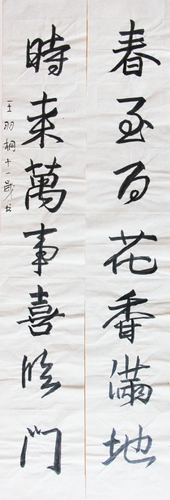 春至百花香满地
時来萬事喜临门
王羽桐十一岁书